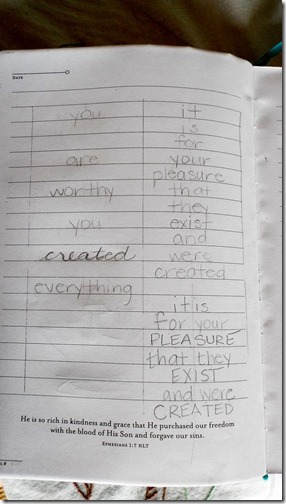 Date
you
are
worthy
you
created
everything
it
is
for
your
pleasure
that
they
exist
and
were
created
it is
for your
PLEASURE
that they
EXIST
and were
CREATED
He is so rich in kindness and grace that He purchased our freedom
with the blood of His Son and forgave our sins.
Ephesians 1:7 NLT